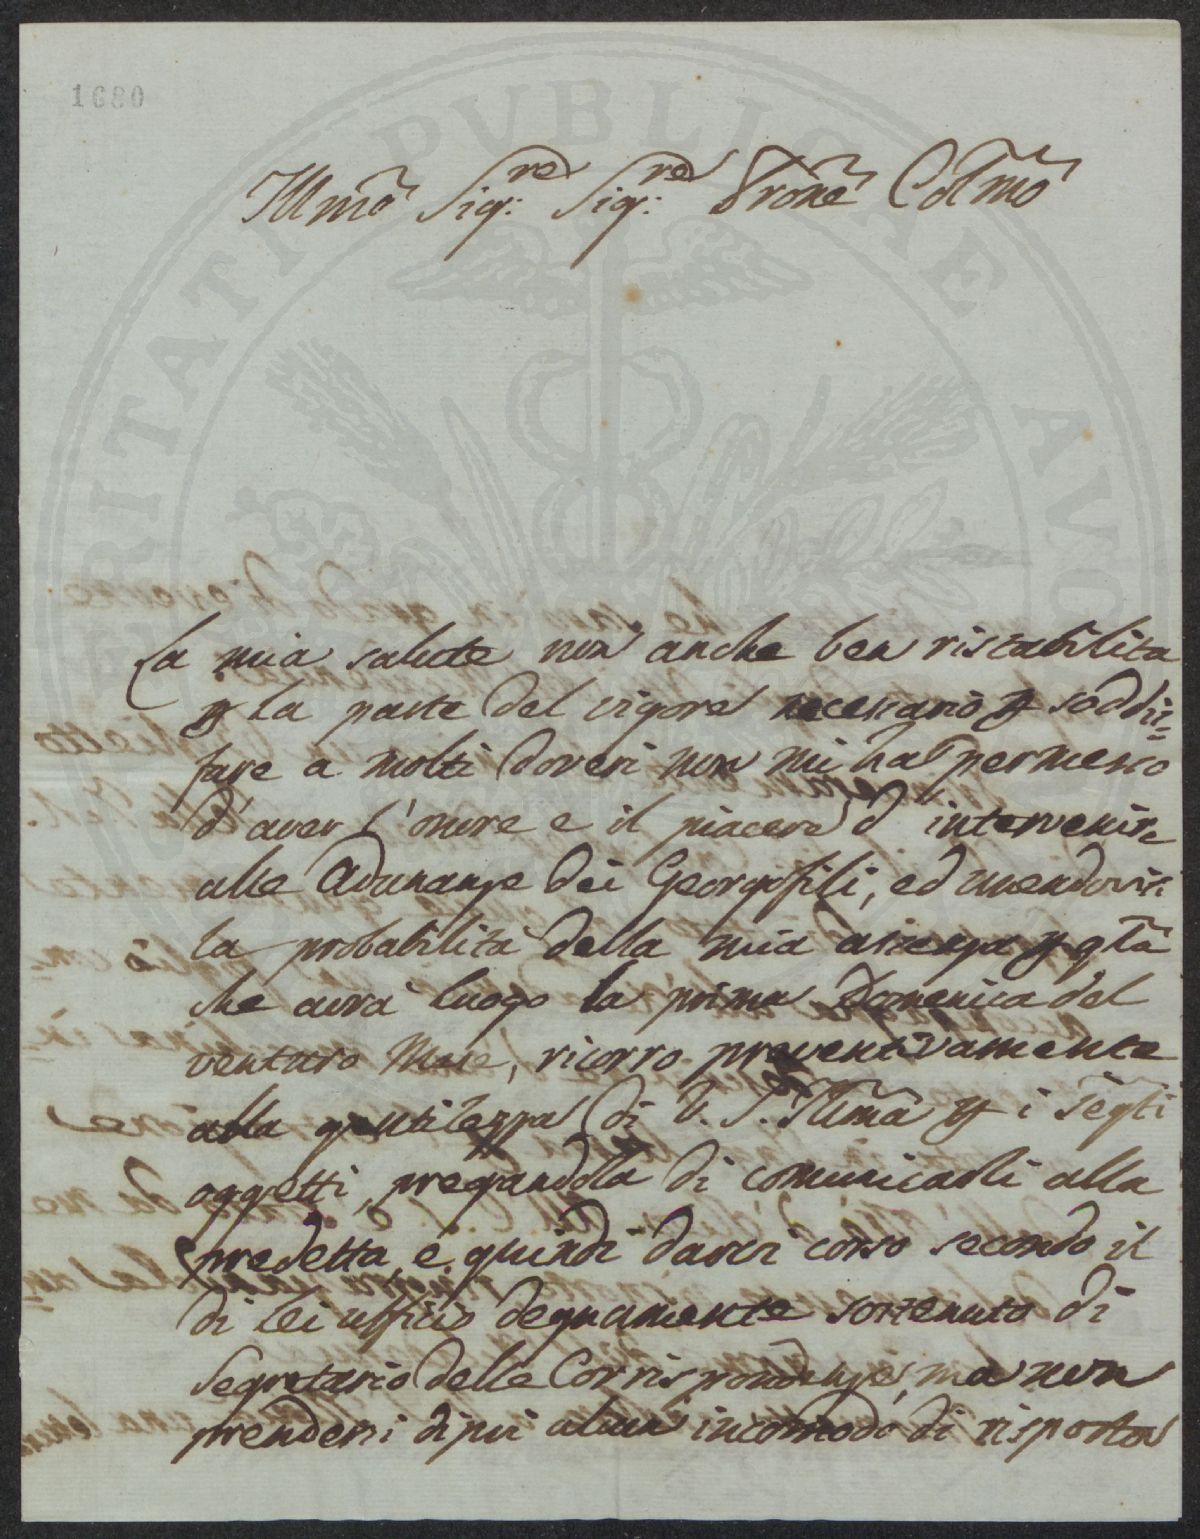 1680
Illmo Sig:re Sig:re Prone Colmo
La mia salute non anche ben ristabilita
p la parte del vigore necessario p soddis=
fare a molti doveri non mi ha permesso
d'aver l'onore e il piacere d'intervenire
alle Adunanze dei Georgofili, ed essendovi
la probabilità della mia assenza p qlla
che avrà luogo la prima Domenica del
venturo Mese, ricorro preventivamente
alla gentilezza di V. S. Illma p i segti
oggetti, pregandola di comunicarli alla
predetta, e quindi darvi corso secondo il
di lei ufficio degnamente sostenuto di
Segretario delle Corrispondenze, ma non
prendersi di più alcun incomodo di risposta